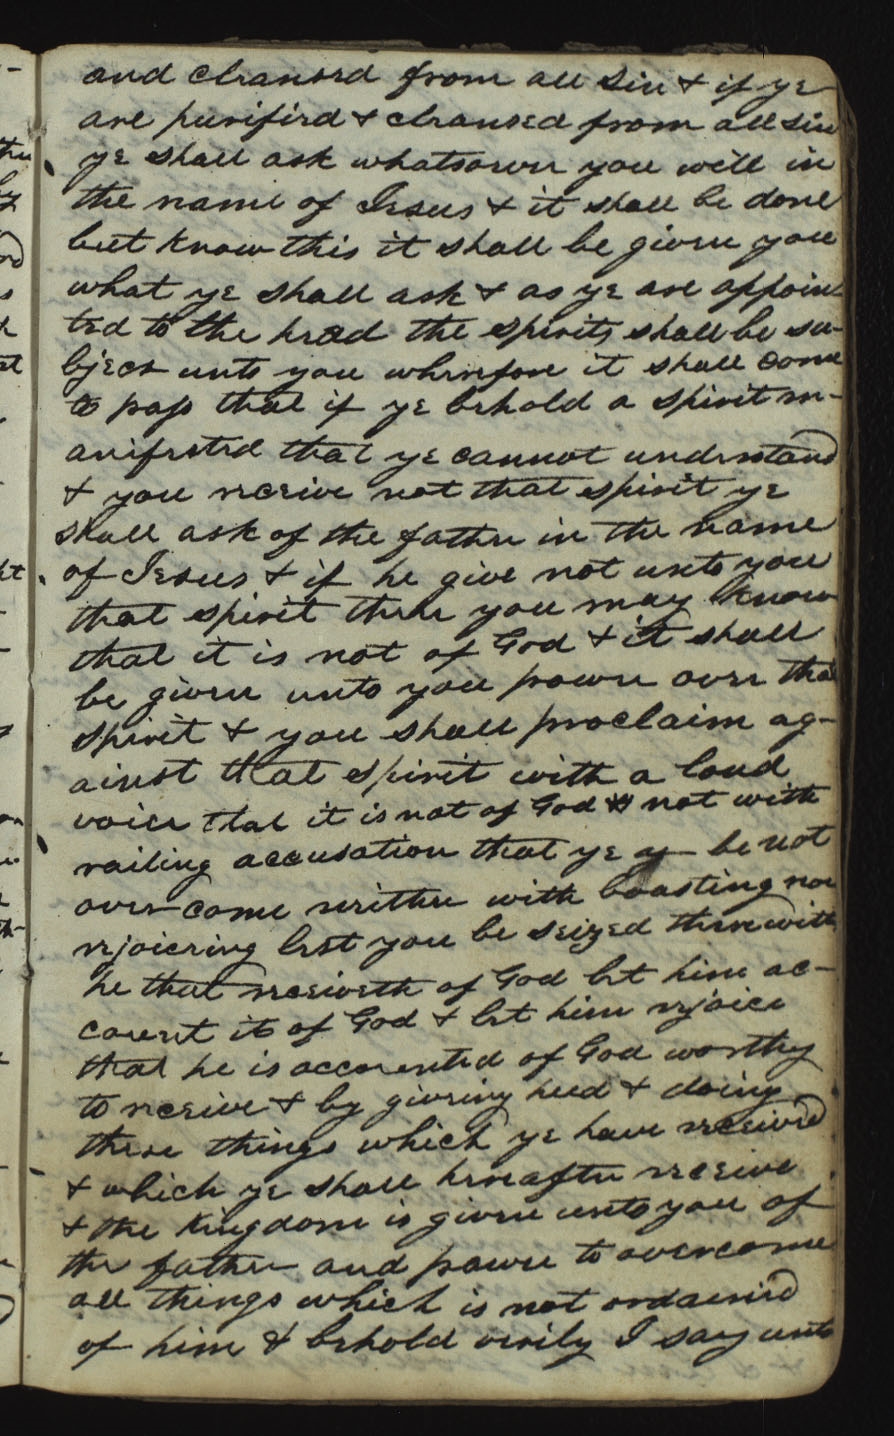 and cleansed from all Sin & if ye
are purifi[e]d & cleansed from all sin
ye shall ask whatsoever you will in
the name of Jesus & it shall be done
but know this it shall be given you
what ye shall ask & as ye are appoin
ted to the head the spirits shall be su-
bject unto you wherefore it shall come
to pass that if ye behold a spirit m-
anifested that ye cannot understand
& you receive not that spirit ye
shall ask of the father in the name
of Jesus & if he give not unto you
that spirit then you may know
that it is not of God & it shall
be given unto you power over that
spirit & you shall proclaim ag-
ainst that spirit with a loud
voice that it is not of God not with
railing accusation that ye be not
over come neither with boasting nor
rejoiceing lest you be seized therewith
he that receiveth of God let him ac-
count it of God & let him rejoice
that he is accounted of God worthy
to receive & by giveing heed & doing
these things which ye have received
& which ye shall hereafter receive
& the kingdom is given unto you of
the father and power to overcome
all things which is not ordained
of him & behold verily I say unto